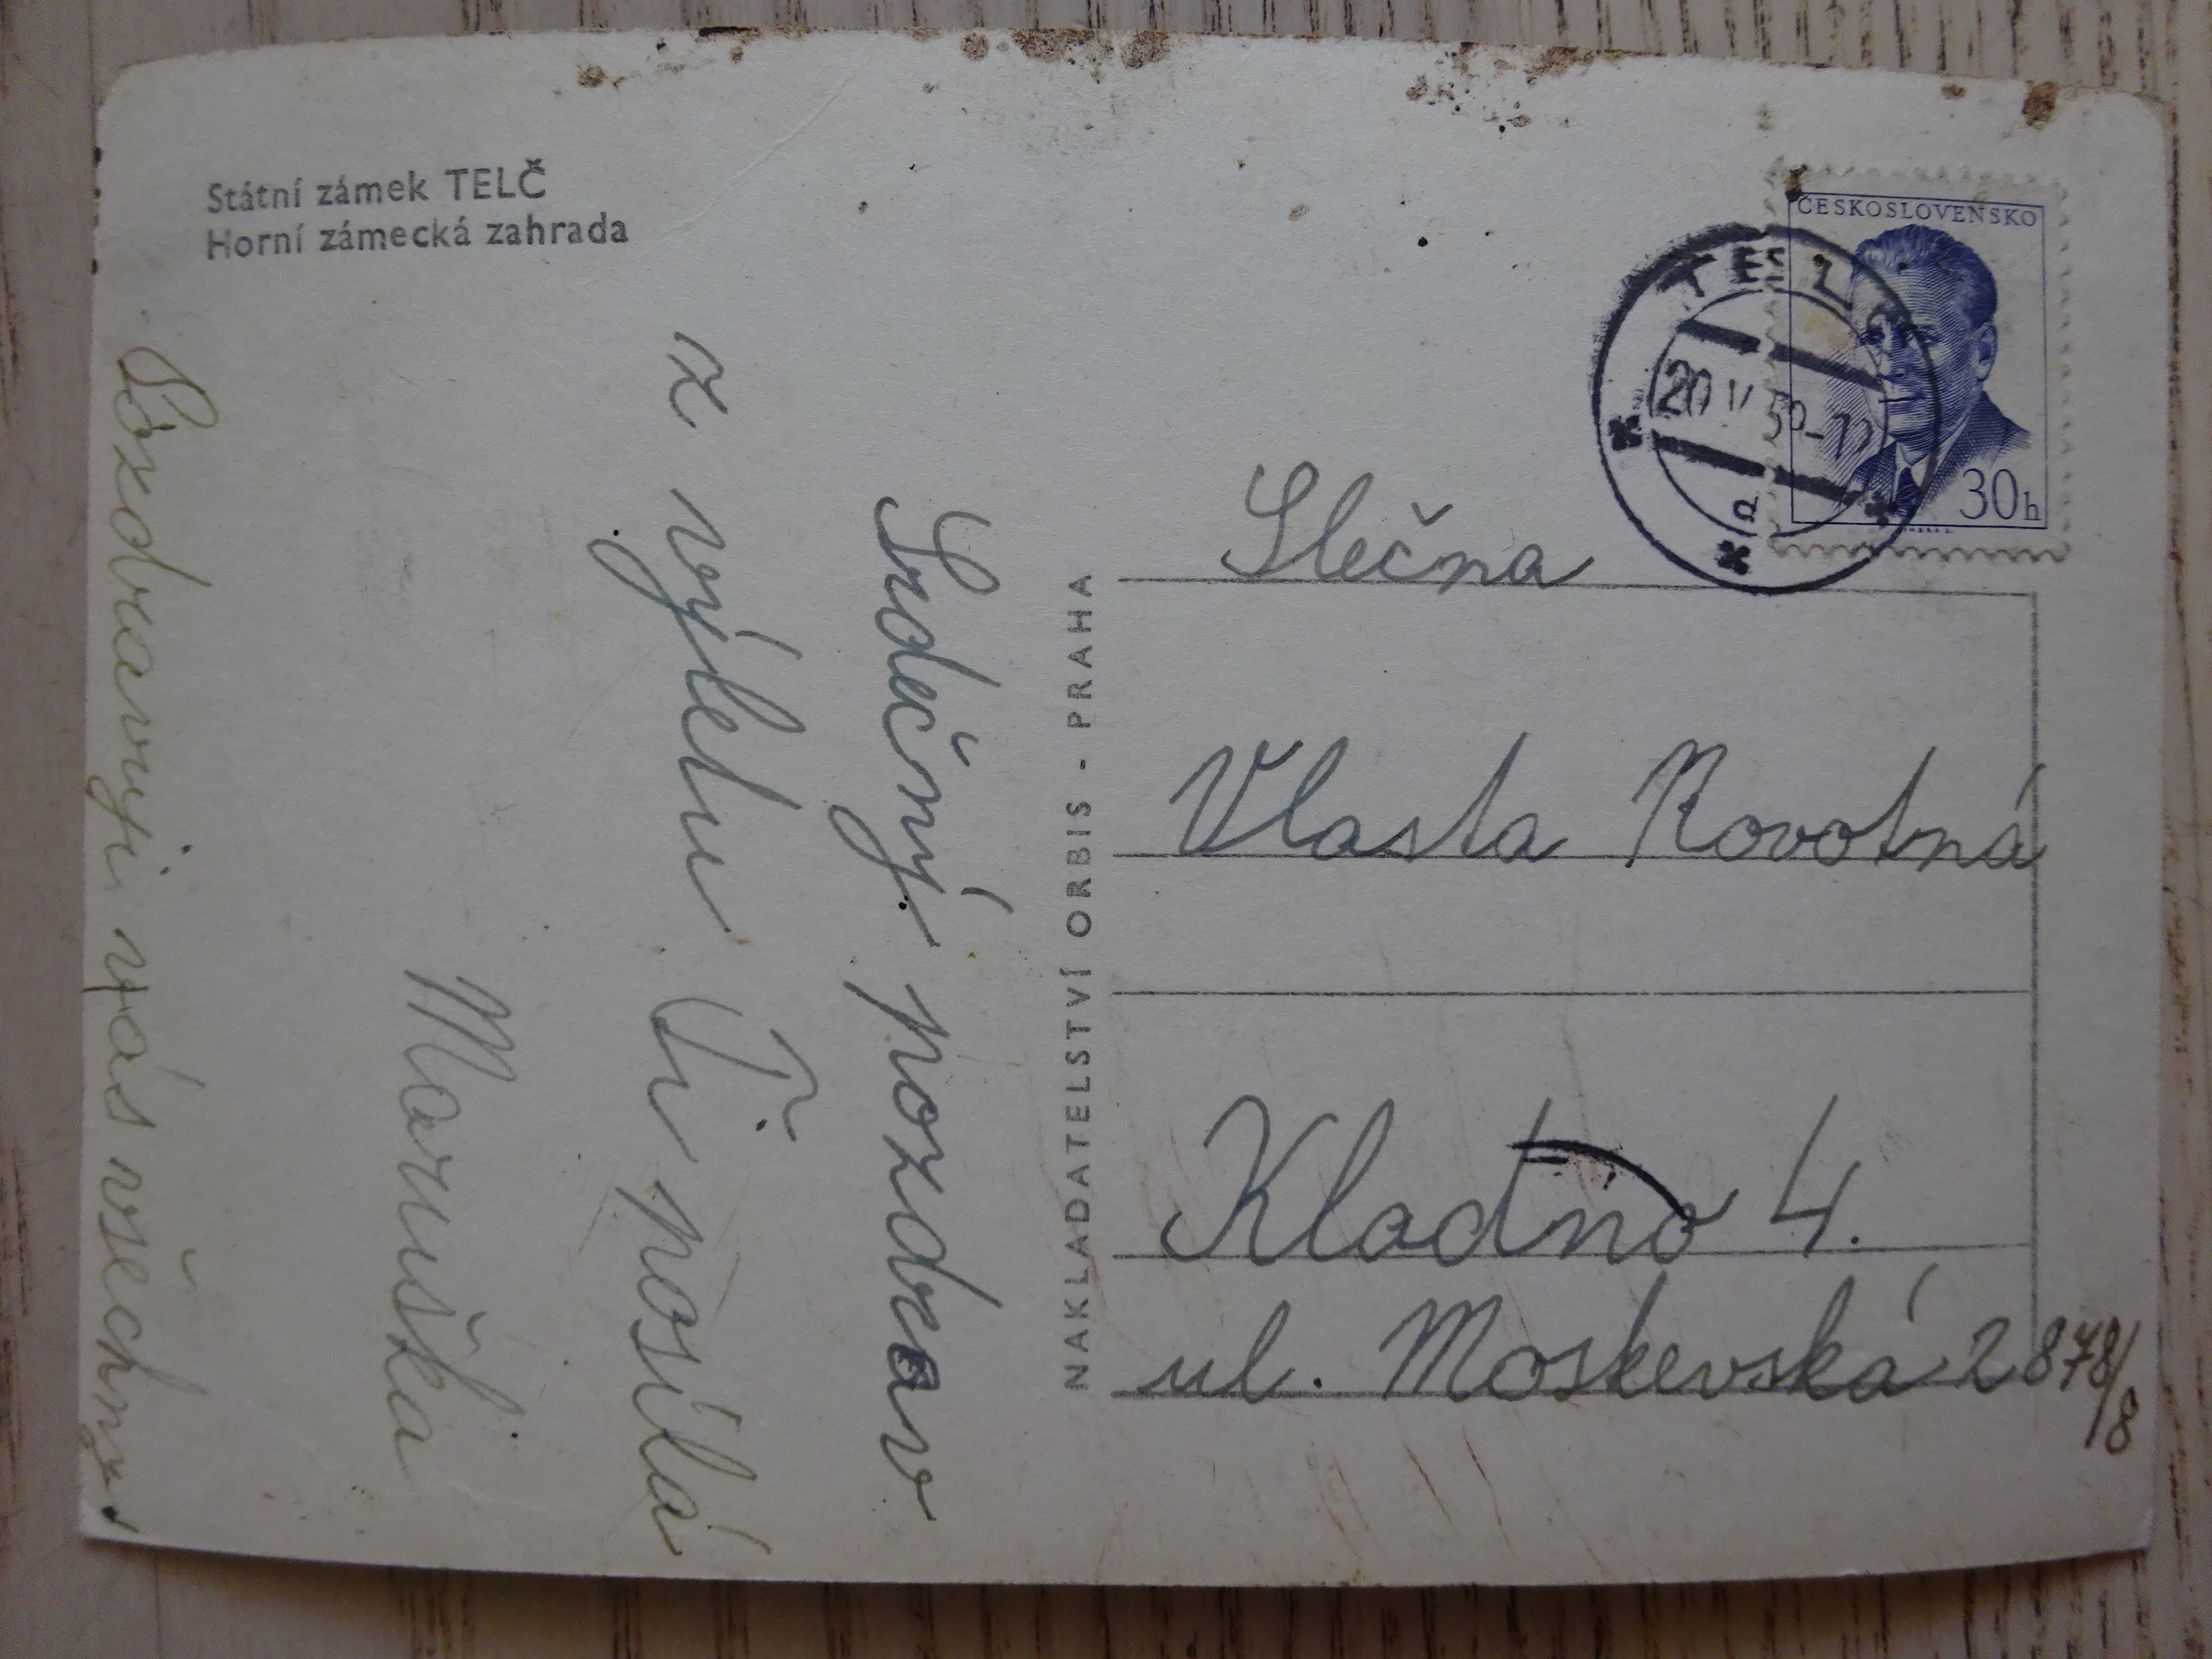 Státní zámek TELČ
Horní zámecká zahrada
Srdečný pozdrav
z výletu Ti posílá
Maruška
Pozdravuji vás všechny
NAKLADATELSTVÍ ORBIS - PRAHA
ČESKOSLOVENSKO
30h
TELČ
20
a
Slečna
Vlasta Novotná
Kladno 4.
ul. Moskevská 2878/8